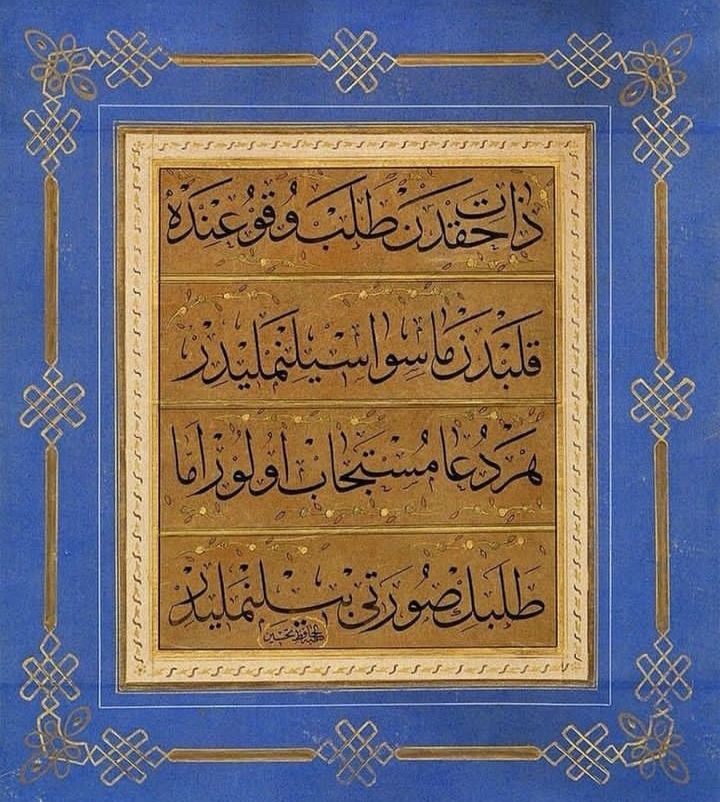 ذات حقدن طلب وقوعنده
قلبدن ماسوا سیلنملیدر
هر دعا مستجاب اولور اما
طلبك صورتی بیلنملیدر